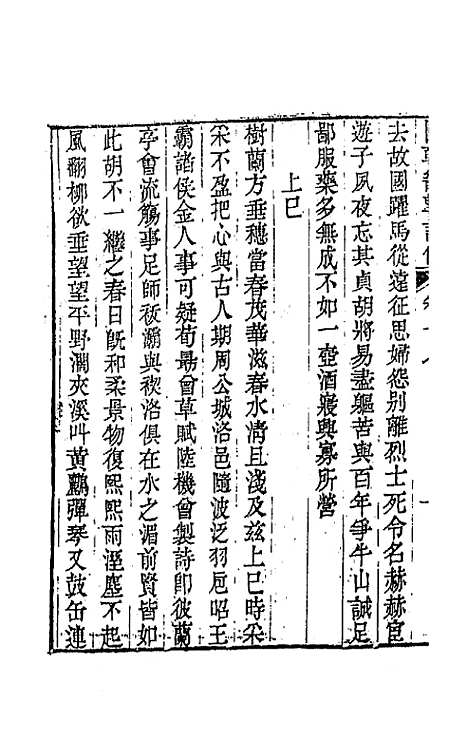 去故國躍馬從遠征思婦怨別離烈士死令名赫赫宦
遊子夙夜忘其貞胡將易盡軀苦與百年爭牛山誠足
鄙服藥多無成不如一壺酒寢興寡所營
上巳
樹蘭方垂穗當春茂華滋春水清且淺及兹上巳時采
采不盈把心與古人期周公城洛邑隨波泛羽卮昭王
霸諸侯金人事可疑荀勗會草賦陸機曾製詩卽彼蘭
亭會流觴事足師秡灞與稧洛俱在水之湄前賢皆如
此胡不一繼之春日旣和柔景物復熙熙雨溼塵不起
風翻柳欲垂望望平野濶夾溪叫黃鸝彈琴又鼓缶連